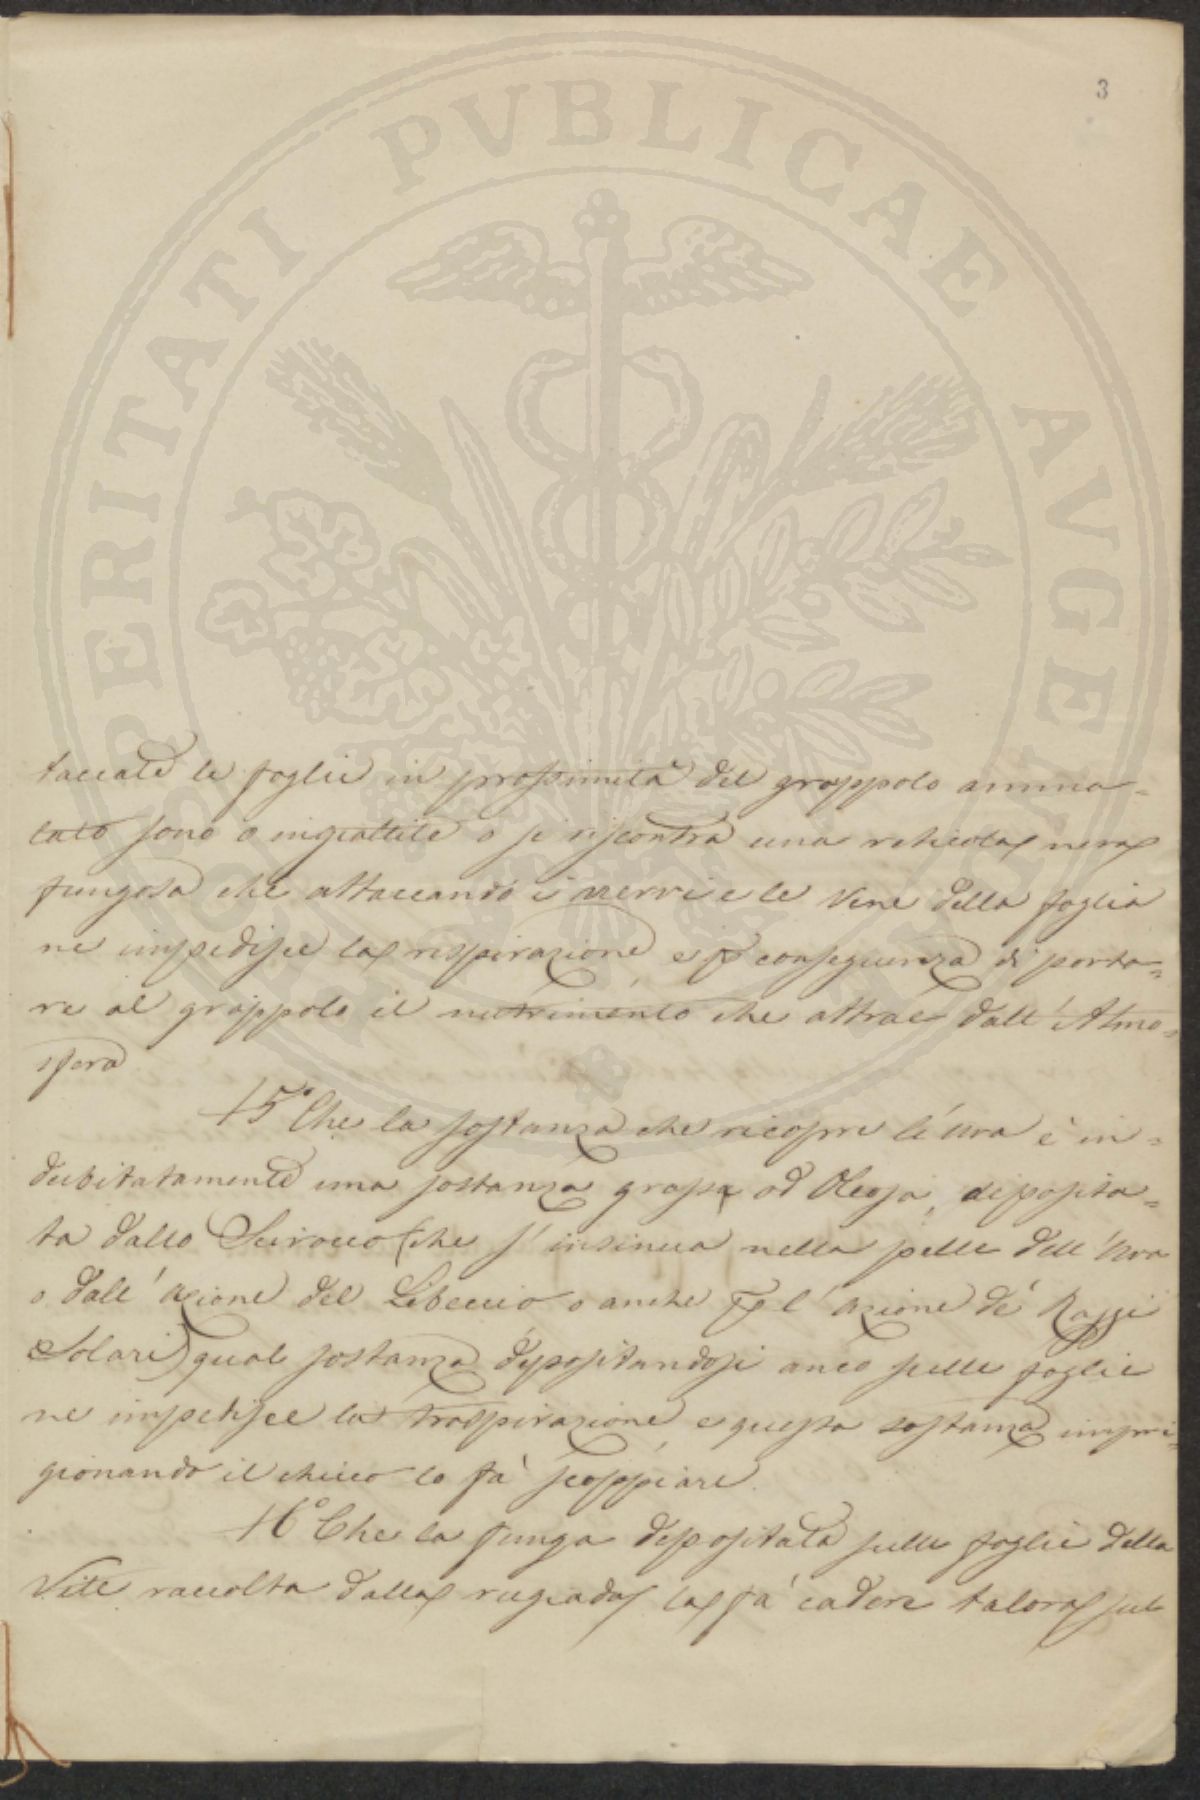 3
PROSPERITATI PVBLICAE AVGENDAE
taccate le foglie in prossimità del grappolo amma-
lato sono o ingiallite o si riscontra una reticola nera
fungosa che attaccando i nervi e le vene della foglia
ne impedisce la respirazione e p conseguenza di porta-
re al grappolo il nutrimento che attrae dall'Atmo-
sfera
15° Che la sostanza che ricopre l'uva è in-
dubitatamente una sostanza grassa od Oleosa, deposita-
ta dallo Scirocco (che s'insinua nella pelle dell'Uva
o dall'azione del Libeccio o anche p l'azione de' Raggi
Solari) qual sostanza depositandosi anco sulle foglie
ne impedisce la traspirazione e questa sostanza impri-
gionando il chicco lo fà scoppiare.
16° Che la funga depositata sulle foglie della
Vite raccolta dalla rugiada la fà cadere talora sul